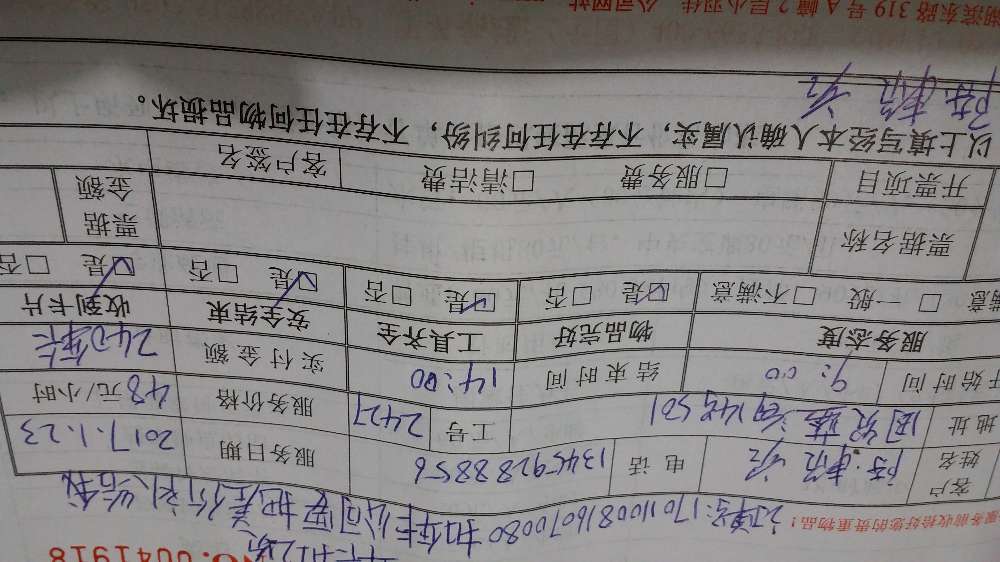 NO:0041918
服务前收拾好您的贵重物品！
订单号:1701100816070080 扣年卡公司要把差价补给我
客户姓名 陈 电话 13459288856 服务日期 2017.1.23
地址 148 501 工号 2427 服务价格 48元/小时
开始时间 9:00 结束时间 14:00 实付金额 240年卡
服务态度 物品完好 工具齐全 安全结束 收到卡片
满意 □一般 □不满意 ☑是 □否 ☑是 □否 ☑是 □否 ☑是 □否
票据名称 票据金额
开票项目 □服务费 □清洁费 客户签名
以上填写经本人确认属实，不存在任何纠纷，不存在任何物品损坏。
陈
湖滨东路319号A幢2层小羽佳 公司网站